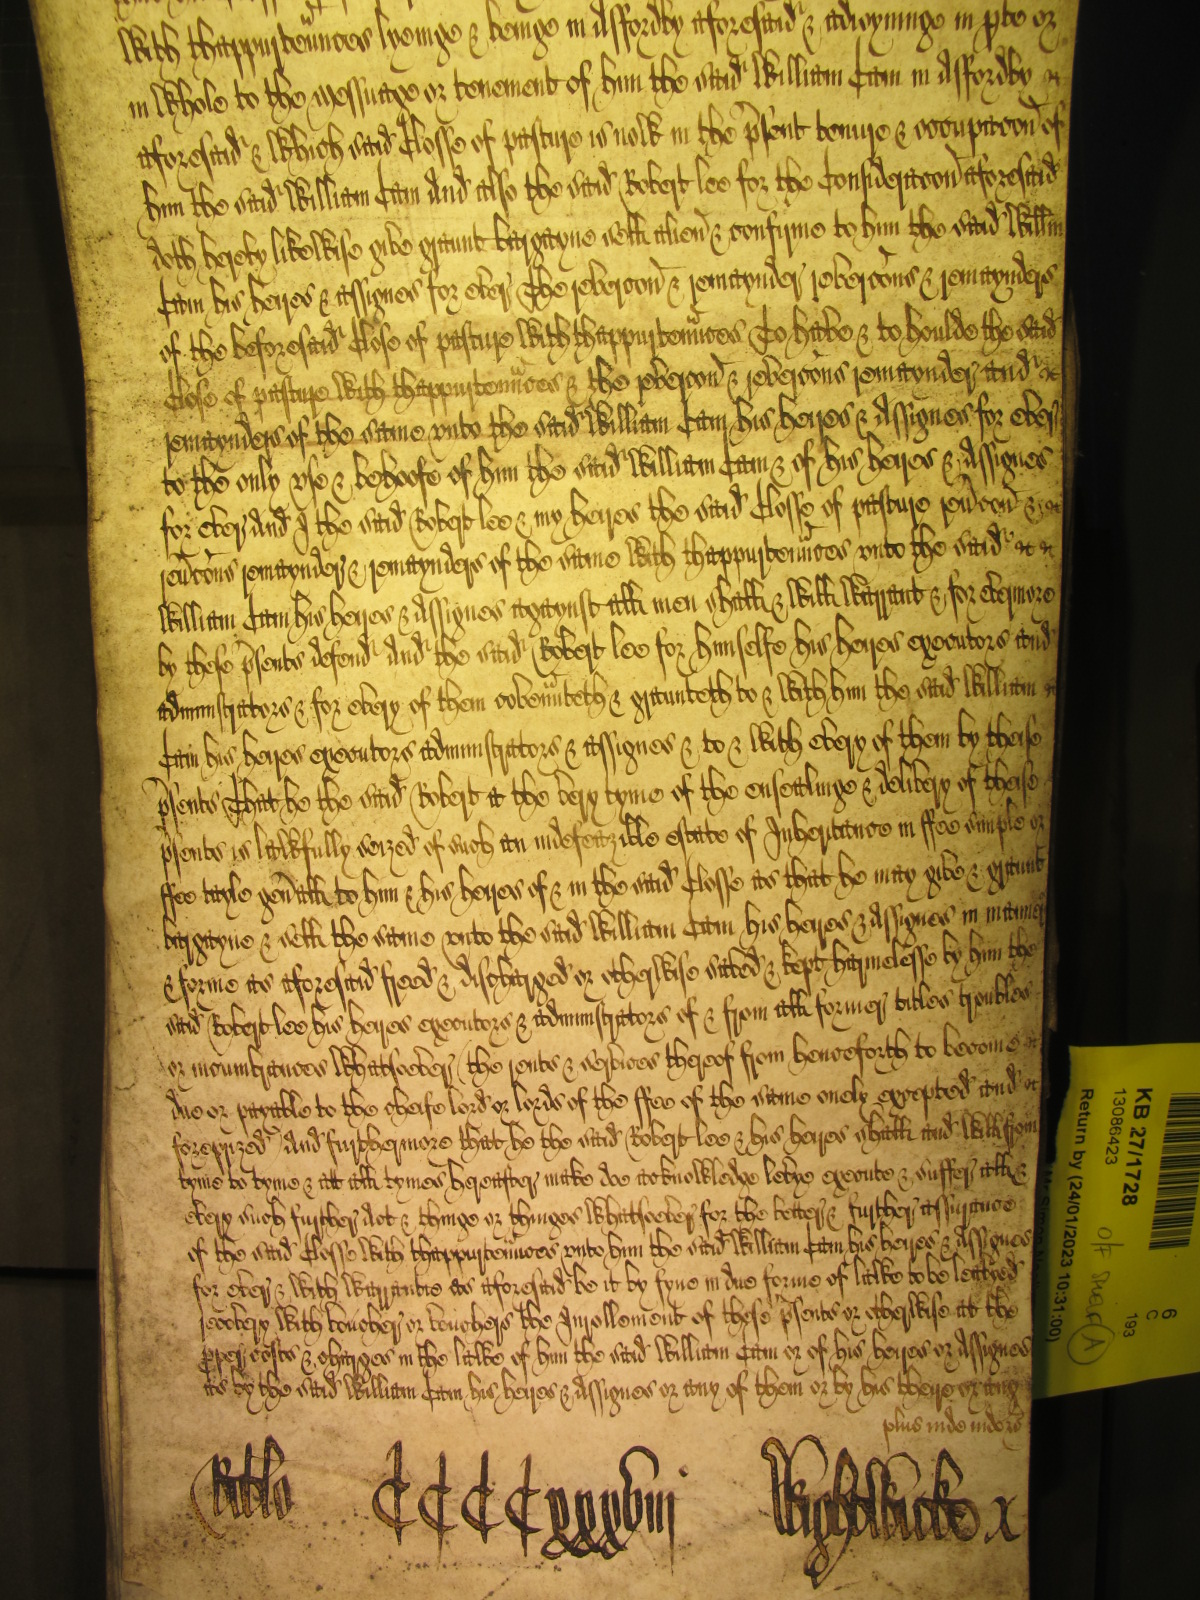 with thappurtenñces lyeinge & beinge in Assfordby aforesaid & adioyninge in pte or
in whole to the messuage or tenement of him the said William Cam in Assfordby
aforesaid & which said Closse of pasture is now in the p̃sent tenure & occupac̃on of
him the said William Cam And also the said Robert Lee for the Considerac̃on aforesaid
doth hereby likewise give graunt bargayne sell alien & confirme to him the said Willm
Cam his heires & assignes for ever The rever̃con & remaynder rever̃cons & remaynders
of the beforesaid Close of pasture with thappurtenñces To have & to houlde the said
Close of pasture with thappurtenñces & the rever̃con & rever̃cons remaynder and
remaynders of the same vnto the said William Cam his heires & Assignes for ever
to the only vse & behoofe of him the said William Cam & of his heires & Assignes
for ever And I the said Robert Lee & my heires the said Closse of pasture reṽcon &
reṽcons remaynder & remaynders of the same with thappurtenñces vnto the said
William Cam his heires & Assignes agaynst all men shall & will warrant & for evermore
by these p̃sents defend And the said Robert Lee for himselfe his heires executors and
administrators & for every of them coveñnteth & graunteth to & with him the said William
Cam his heires executors administrators & assignes & to & with every of them by theise
p̃sents That he the said Robert at the very tyme of the ensealinge & delivery of theise
p̃sents is lawfully seized of such an indefeazible estate of Inheritance in ffee simple or
ffee tayle gen̄all to him & his heires of & in the said Closse as that he may give & graunt
bargayne & sell the same vnto the said William Cam his heires & Assignes in manner
& forme as aforesaid freed & discharged or otherwise saved & kept harmelesse by him the
said Robert Lee his heires executors & administrators of & from all former titles troubles
or incumbrances whatsoever the rents & services thereof from henceforth to become
due or payable to the cheife lord or lords of the ffee of the same onely excepted and
foreprized And furthermore that he the said Robert Lee & his heires shall and will from
tyme to tyme & att all tymes hereafter make doe acknowledge levye execute & suffer all &
every such further Act & thinge or thinges whatsoever for the better & further assurance
of the said Closse with thappurtenñces vnto him the said William Cam his heires & Assignes
for ever & with warrantie as aforesaid be it by fyne in due forme of lawe to be leavyed
recovery with voucher or vouchers the Inrollement of these p̃sents or otherwise at the
pper costs & charges in the lawe of him the said William Cam or of his heires or Assignes
as by the said William Cam his heires & Assignes or any of them or by his theire or any
plus inde indors̃
CCCCxxxviij Wightwicke x
KB 27/1728
13086423
Return by (24/01/2023 10:31:00)
6
C
193
A